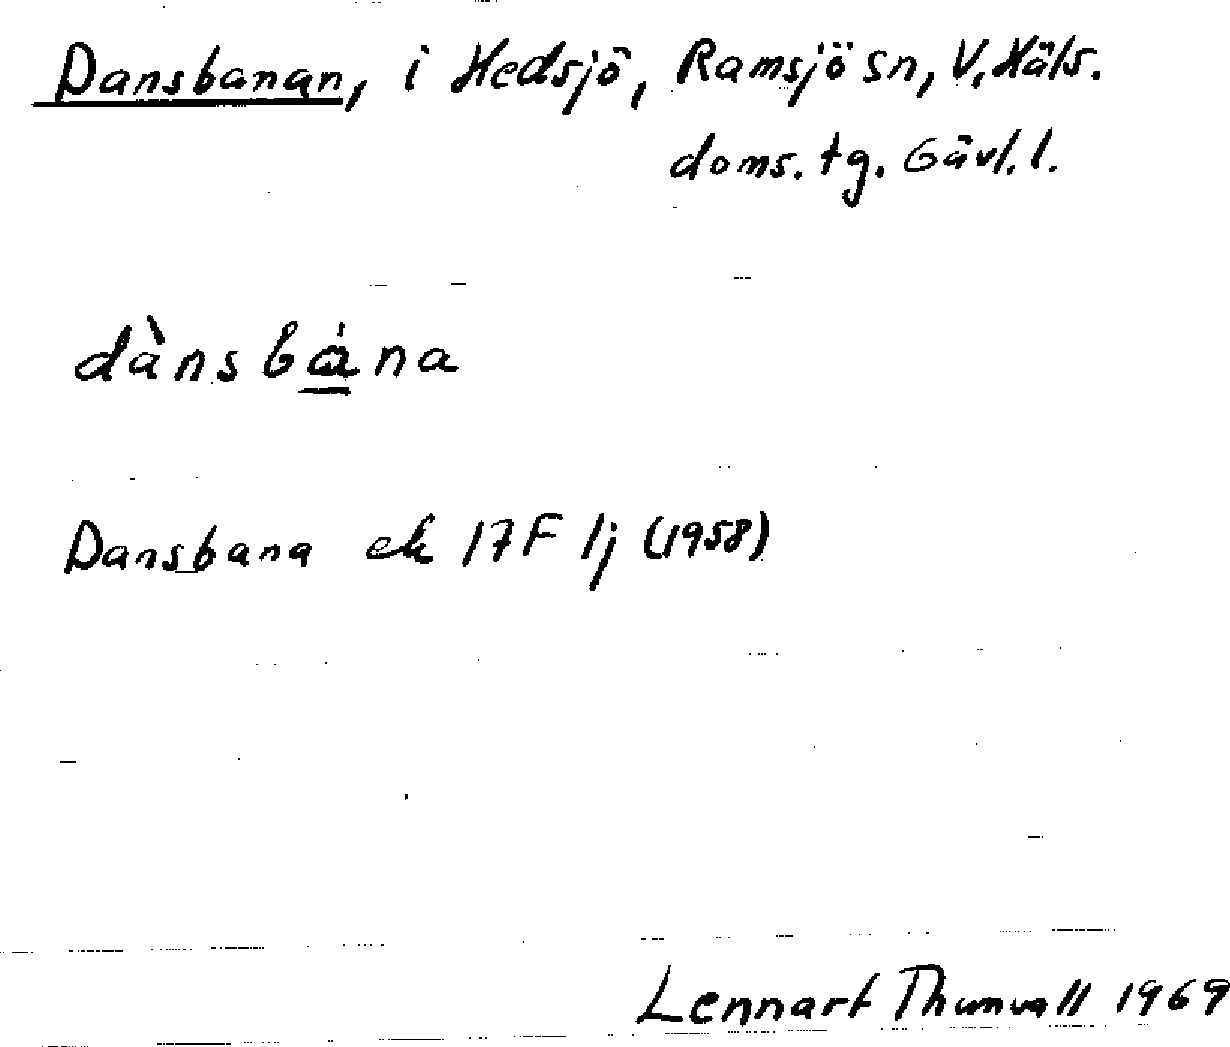 Dansbanan, i Hedsjö, Ramsjö sn, V. Häls.
doms. tg. Gävl. l.
dànsbána
Dansbana ek 17F 1j (1958)
Lennart Thunvall 1969